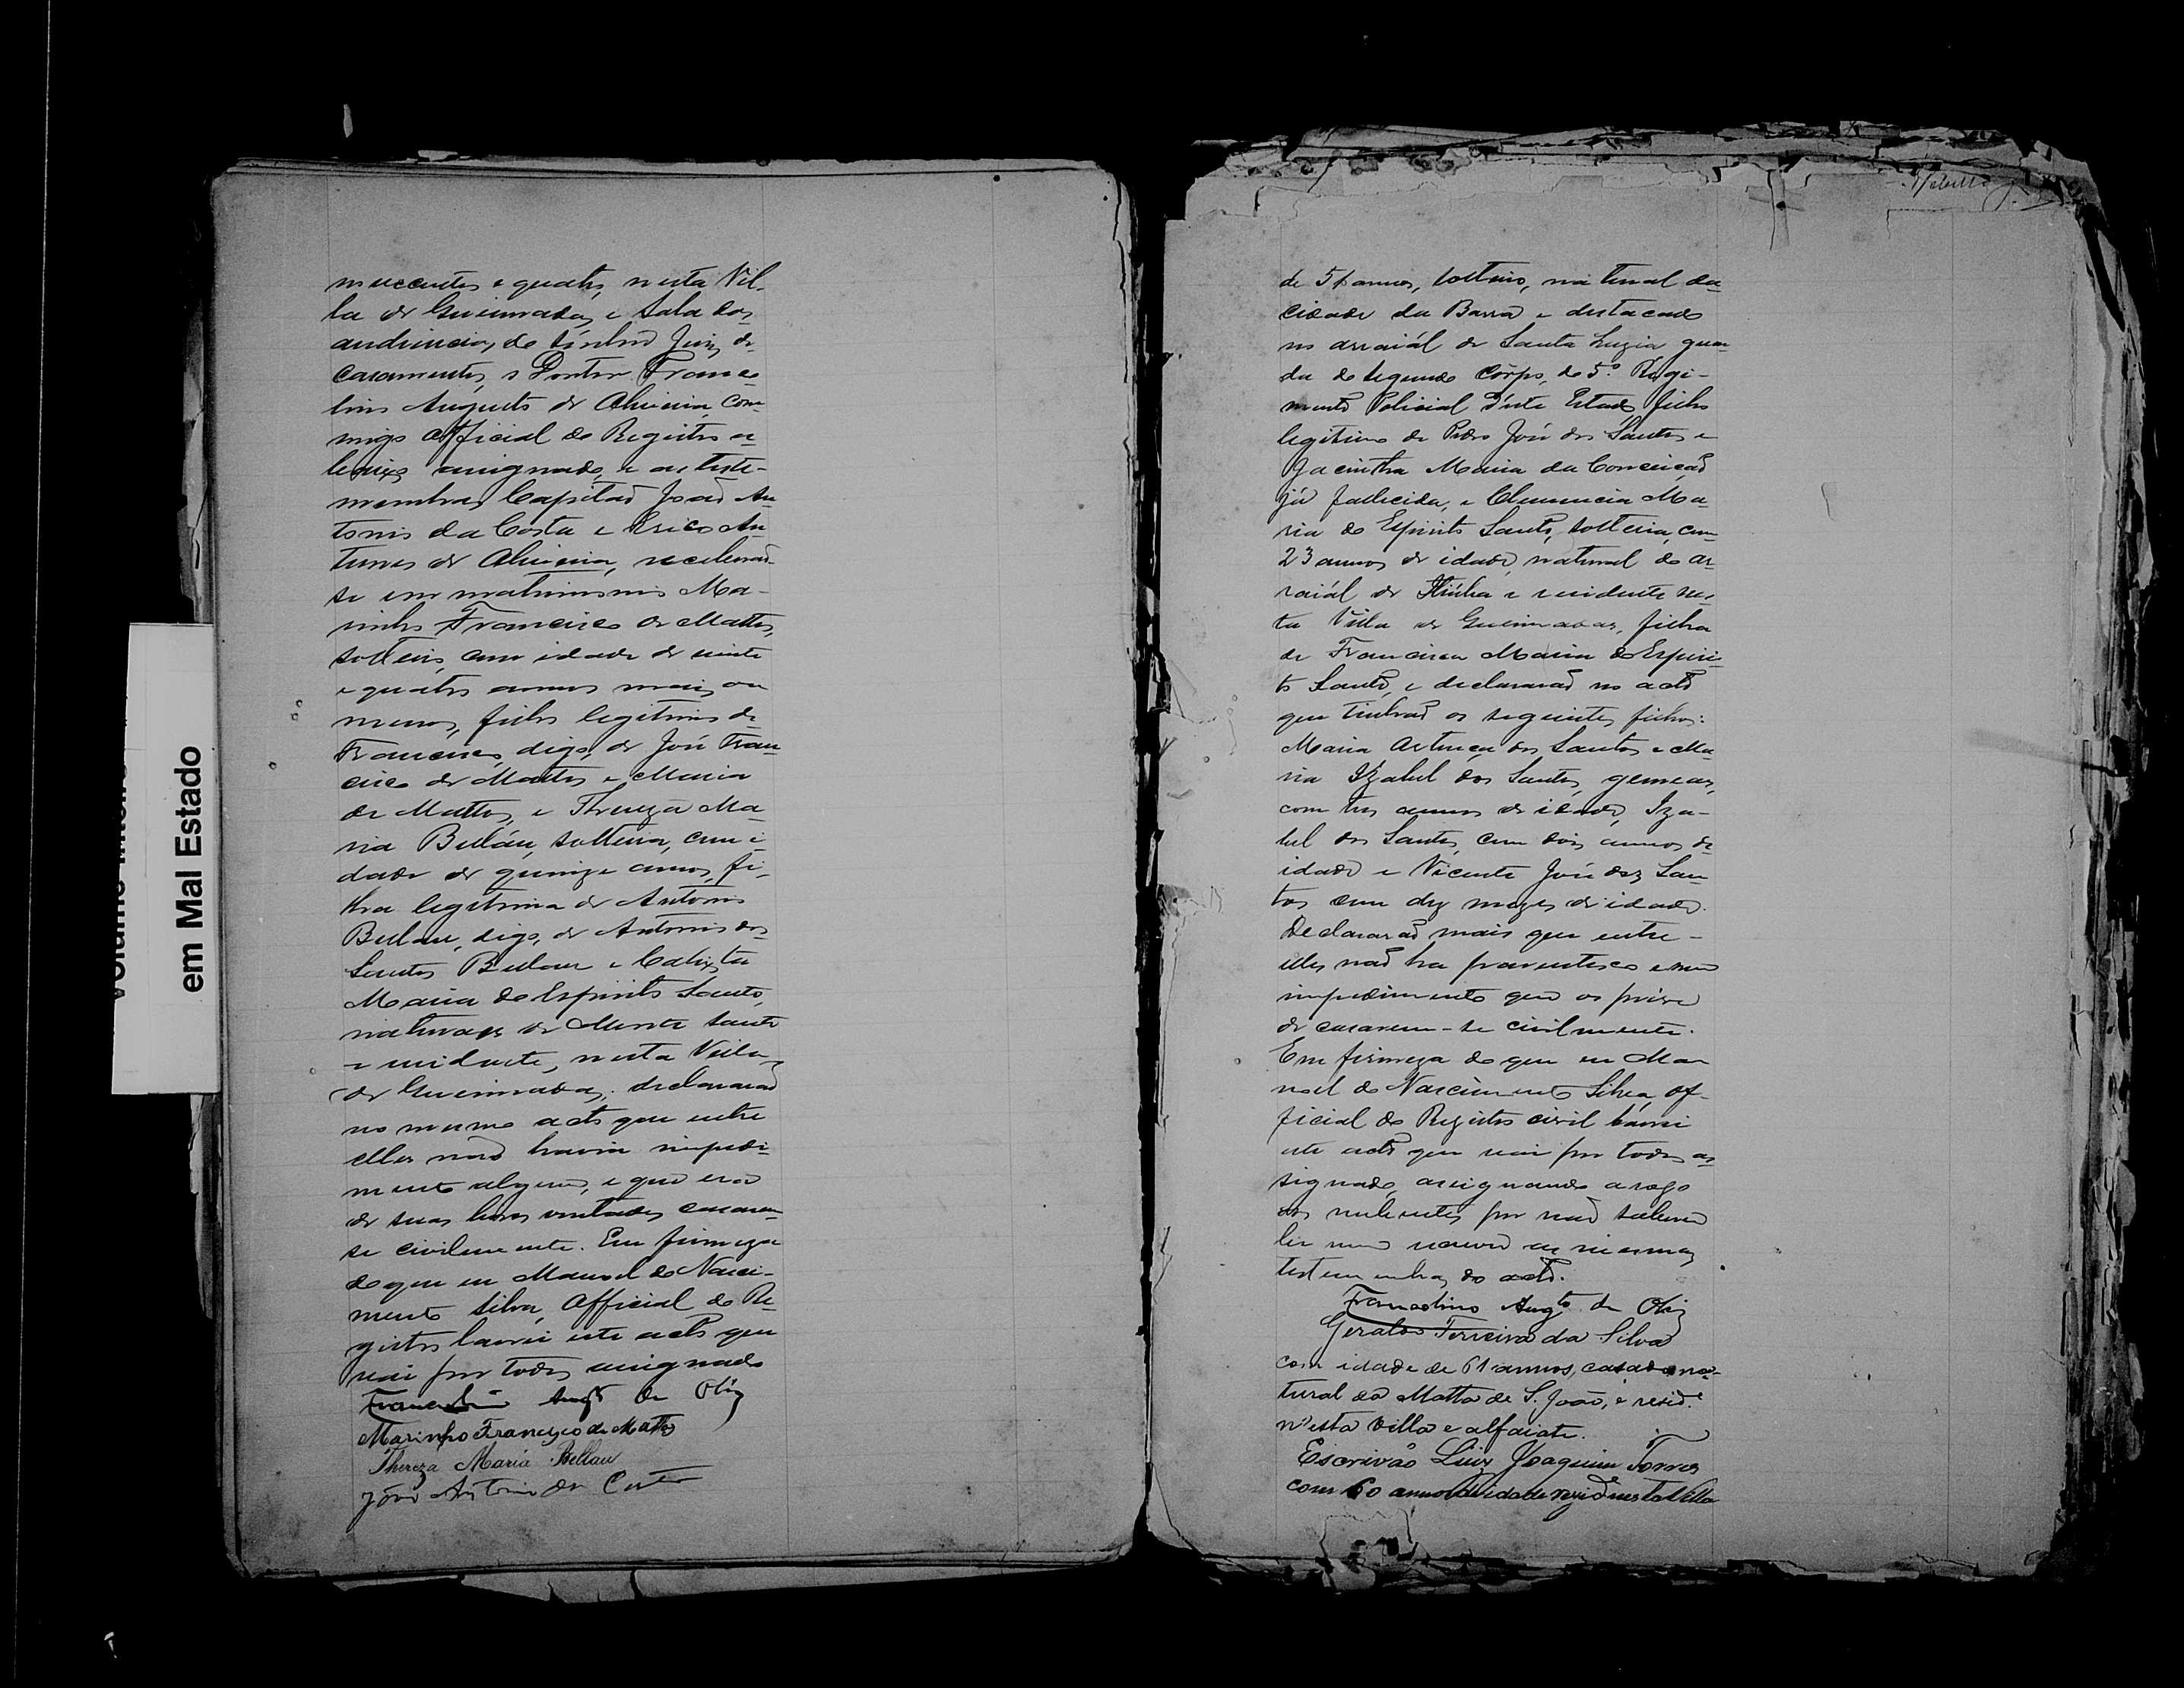 nuecentos e quatro, nesta Vil-
la de Queimadas e Sala das
audiencias do senhor Juiz de
Casamentos, o Doutor Franco
lino Augusto de Oliveira, com
migo Official do Registro a
baixo assignado, e as teste-
munhas Capitaõ Joaõ An
tonio da Costa e Erico An
tunes de Oliveira, receberaõ
se em matrimonio Ma-
rinho Francisco de Mattos,
solteiro, com idade de vinte
e quatro annos mais ou
menos, filho legitimo de
Francisco, digo, de José Fran
cisco de Mattos e Maria
de Mattos, e Thereza Ma
ria Bellau, solteira, com i-
dade de quinze annos, fi-
lha legitima de Antonio
Bellau, digo, de Antonio dos
Santos Bellau e Calixta
Maria do Espirito Santo,
naturaes de Monte Santo
e residente, nesta Villa
de Queimadas; declararaõ
no mesmo acto que entre
elles naõ havia impedi-
mento algum, e que era
de suas livres vontades casarem
se civilmente. Em firmeza
do que eu Manoel do Nasci-
mento Silva, Official do Re
gistro lavrei este acto que
vai por todos assignado
Francolino Augto de Olivª
Marinho Francisco de Mattos
Thereza Maria Bellau
João Antonio da Costa
em Mal Estado
de annos, solteiro, natural da
cidade da Barra e destacado
no arraiál de Santa Luzia guar
da do segundo Corpo, do 5º Regi-
mento Policial d'este Estado, filho
legitimo de Pedro José dos Santos e
Jacintha Maria da Conceiçaõ
já fallecida, e Clemencia Ma-
ria do Espirito Santo, solteira, com
23 annos de idade, natural do ar
raiál de e residente nes-
ta Villa de Queimadas, filha
de Francisca Maria do Espiri
to Santo, e declararaõ no acto
que tinhaõ os seguintes filhos:
Maria dos Santos e Ma
ria Izabel dos Santos, gemeas,
com tres annos de idade, Iza-
bel dos Santos, com dois annos de
idade e Vicente José dos San
tos com dez mezes de idade.
Declararaõ mais que entre-
elles naõ ha parentesco e nem
impedimento que os prive
de casarem-se civilmente.
Em firmeza do que eu Ma
noel do Nascimento Silva, Of-
ficial do Registro civil lavrei
este acto que vai por todos as
signado, assignando a rogo
dos nubentes por naõ saberem
ler nem escrever as mesmas
testemunhas do acto.
Francolino Augto de Olivª
Geraldo Ferreira da Silva
com idade de 61 annos, casado na-
tural da Matta de S. João, e resid.e
n'esta Villa e alfaiate.
Escrivão Luiz Joaquim Torres
com 60 annos de idade rezide nesta Villa